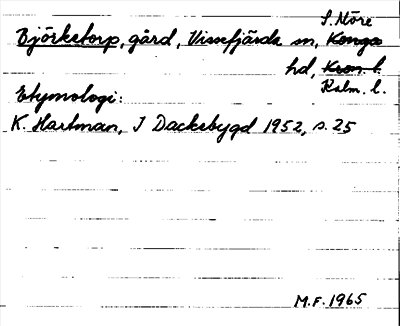 S. Möre
Björketorp, gård, Vissefjärda sn, Konga
hd, Kron. l.
Kalm. l.
Etymologi:
K. Hartman, I Dackebygd 1952, s. 25
M.F. 1965